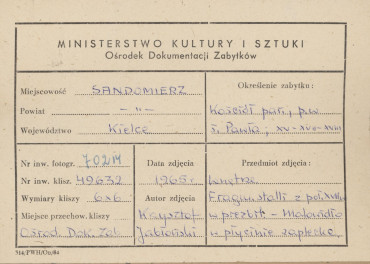 MINISTERSTWO KULTURY I SZTUKI
Ośrodek Dokumentacji Zabytków
Miejscowość SANDOMIERZ
Powiat — " —
Województwo Kielce
Określenie zabytku:
Kościół par. p.w.
ś. Pawła, XV-XVII-XVIII
Nr inw. fotogr. 702M
Nr inw. klisz. 49632
Wymiary kliszy 6x6
Miejsce przechow. kliszy
Ośrod. Dok. Zab.
Data zdjęcia
1965r.
Autor zdjęcia
Krzysztof
Jabłoński
Przedmiot zdjęcia:
wnętrze
Fragm. stalli z poł. XVIIw
w prezbit. - Malowidło
w płycinie zaplecka.